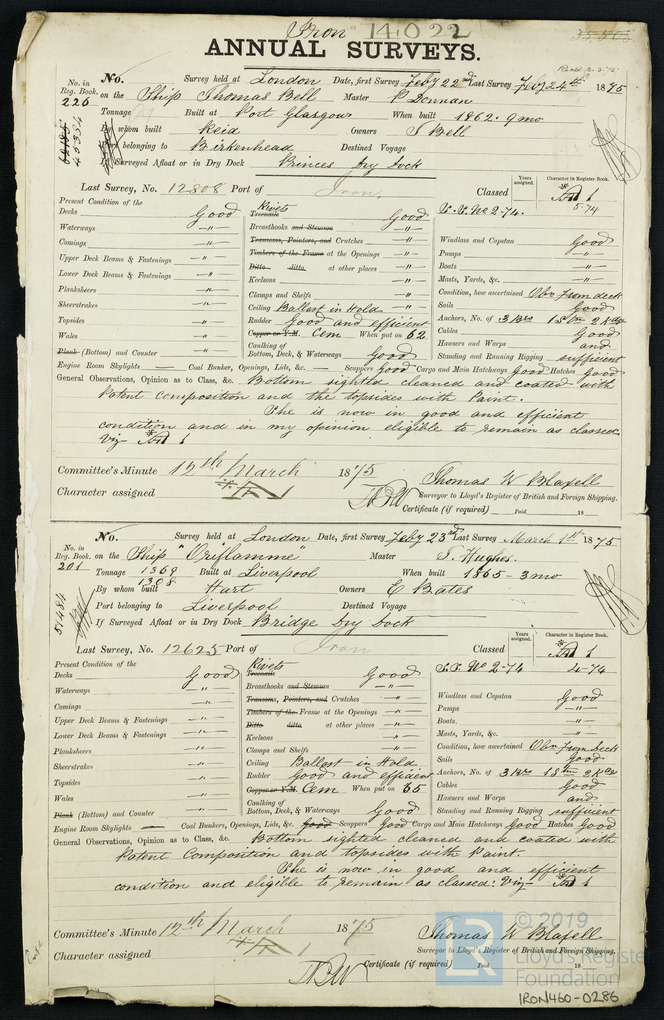 Iron 14022
ANNUAL SURVEYS.
No. in Reg. Book. No. Survey held at London Date, first Survey Feby 22nd Last Survey Feby 24th 1875
226 on the Ship Thomas Bell Master P Donnan
Tonnage Built at Port Glasgow When built 1862. 9mo
By whom built Reid Owners T Bell
Port belonging to Birkenhead Destined Voyage
If Surveyed Afloat or in Dry Dock Princes Dry Dock
Last Survey, No. 12808 Port of Iron Classed Years assigned. Character in Register Book.
A 1
5-74
Present Condition of the Rivets S.S. No 2-74.
Decks Good Treenails Good
Waterways -"- Breasthooks and Stemson -"- Windlass and Capstan Good
Comings -"- Transoms, Pointers, and Crutches -"- Pumps -"-
Upper Deck Beams & Fastenings -"- Timbers of the Frame at the Openings -"- Boats -"-
Lower Deck Beams & Fastenings -"- Ditto ditto at other places -"- Masts, Yards, &c. -"-
Planksheers -"- Keelsons -"- Condition, how ascertained Obn from deck
Sheerstrakes -"- Clamps and Shelfs -"- Sails Good
Topsides -"- Ceiling Ballast in Hold Anchors, No. of 3 Brs 1 Stm 2 Kdgs
Wales -"- Rudder Good and efficient Cables Good
Plank (Bottom) and Counter -"- Copper or Y.M. Cem When put on 62 Hawsers and Warps and
Caulking of Bottom, Deck, & Waterways Good Standing and Running Rigging sufficient
Engine Room Skylights — Coal Bunker, Openings, Lids, &c. — Scuppers Good Cargo and Main Hatchways Good Hatches Good
General Observations, Opinion as to Class, &c. Bottom sighted cleaned and coated with
Patent Composition and the topsides with Paint.
She is now in good and efficient
condition and in my opinion eligible to remain as classed
Viz- A 1
Committee's Minute 12th March 1875 Thomas W Blaxell
Character assigned Surveyor to Lloyd's Register of British and Foreign Shipping.
Certificate (if required) Paid 18
No. in Reg. Book. No. Survey held at London Date, first Survey Feby 23rd Last Survey March 1st 1875
201 on the Ship "Oriflamme" Master S. Hughes.
Tonnage 1369 Built at Liverpool When built 1865-3mo
1308
By whom built Hart Owners E Bates
51484
Port belonging to Liverpool Destined Voyage
If Surveyed Afloat or in Dry Dock Bridge Dry Dock
Last Survey, No. 12625 Port of Iron Classed Years assigned. Character in Register Book.
A 1
Present Condition of the Rivets S.S. No 2-74 4-74
Decks Good Treenails Good
Waterways -"- Breasthooks and Stemson -"- Windlass and Capstan Good
Comings -"- Transoms, Pointers, and Crutches -"- Pumps -"-
Upper Deck Beams & Fastenings -"- Timbers of the Frame at the Openings -"- Boats. -"-
Lower Deck Beams & Fastenings -"- Ditto ditto at other places -"- Masts, Yards, &c. -"-
Planksheers -"- Keelsons -"- Condition, how ascertained Obn from deck
Sheerstrakes -"- Clamps and Shelfs -"- Sails Good
Topsides -"- Ceiling Ballast in Hold Anchors, No. of 3 Brs 1 Stm 2 Kdgs
Wales -"- Rudder Good and efficient Cables Good
Plank (Bottom) and Counter -"- Copper or Y.M. Cem When put on 65 Hawsers and Warps and
Caulking of Bottom, Deck, & Waterways Good Standing and Running Rigging sufficient
Engine Room Skylights — Coal Bunkers, Openings, Lids, &c. Good Scuppers Good Cargo and Main Hatchways Good Hatches Good
General Observations, Opinion as to Class, &c. Bottom sighted cleaned and coated with
Patent Composition and topsides with Paint.
She is now in good and efficient
condition and eligible to remain as classed. Viz- A 1
Committee's Minute 12th March 1875 Thomas W Blaxell
Character assigned Surveyor to Lloyd's Register of British and Foreign Shipping.
Certificate (if required) Paid 18
© 2019
Lloyd's Register
Foundation
IRON460-0286